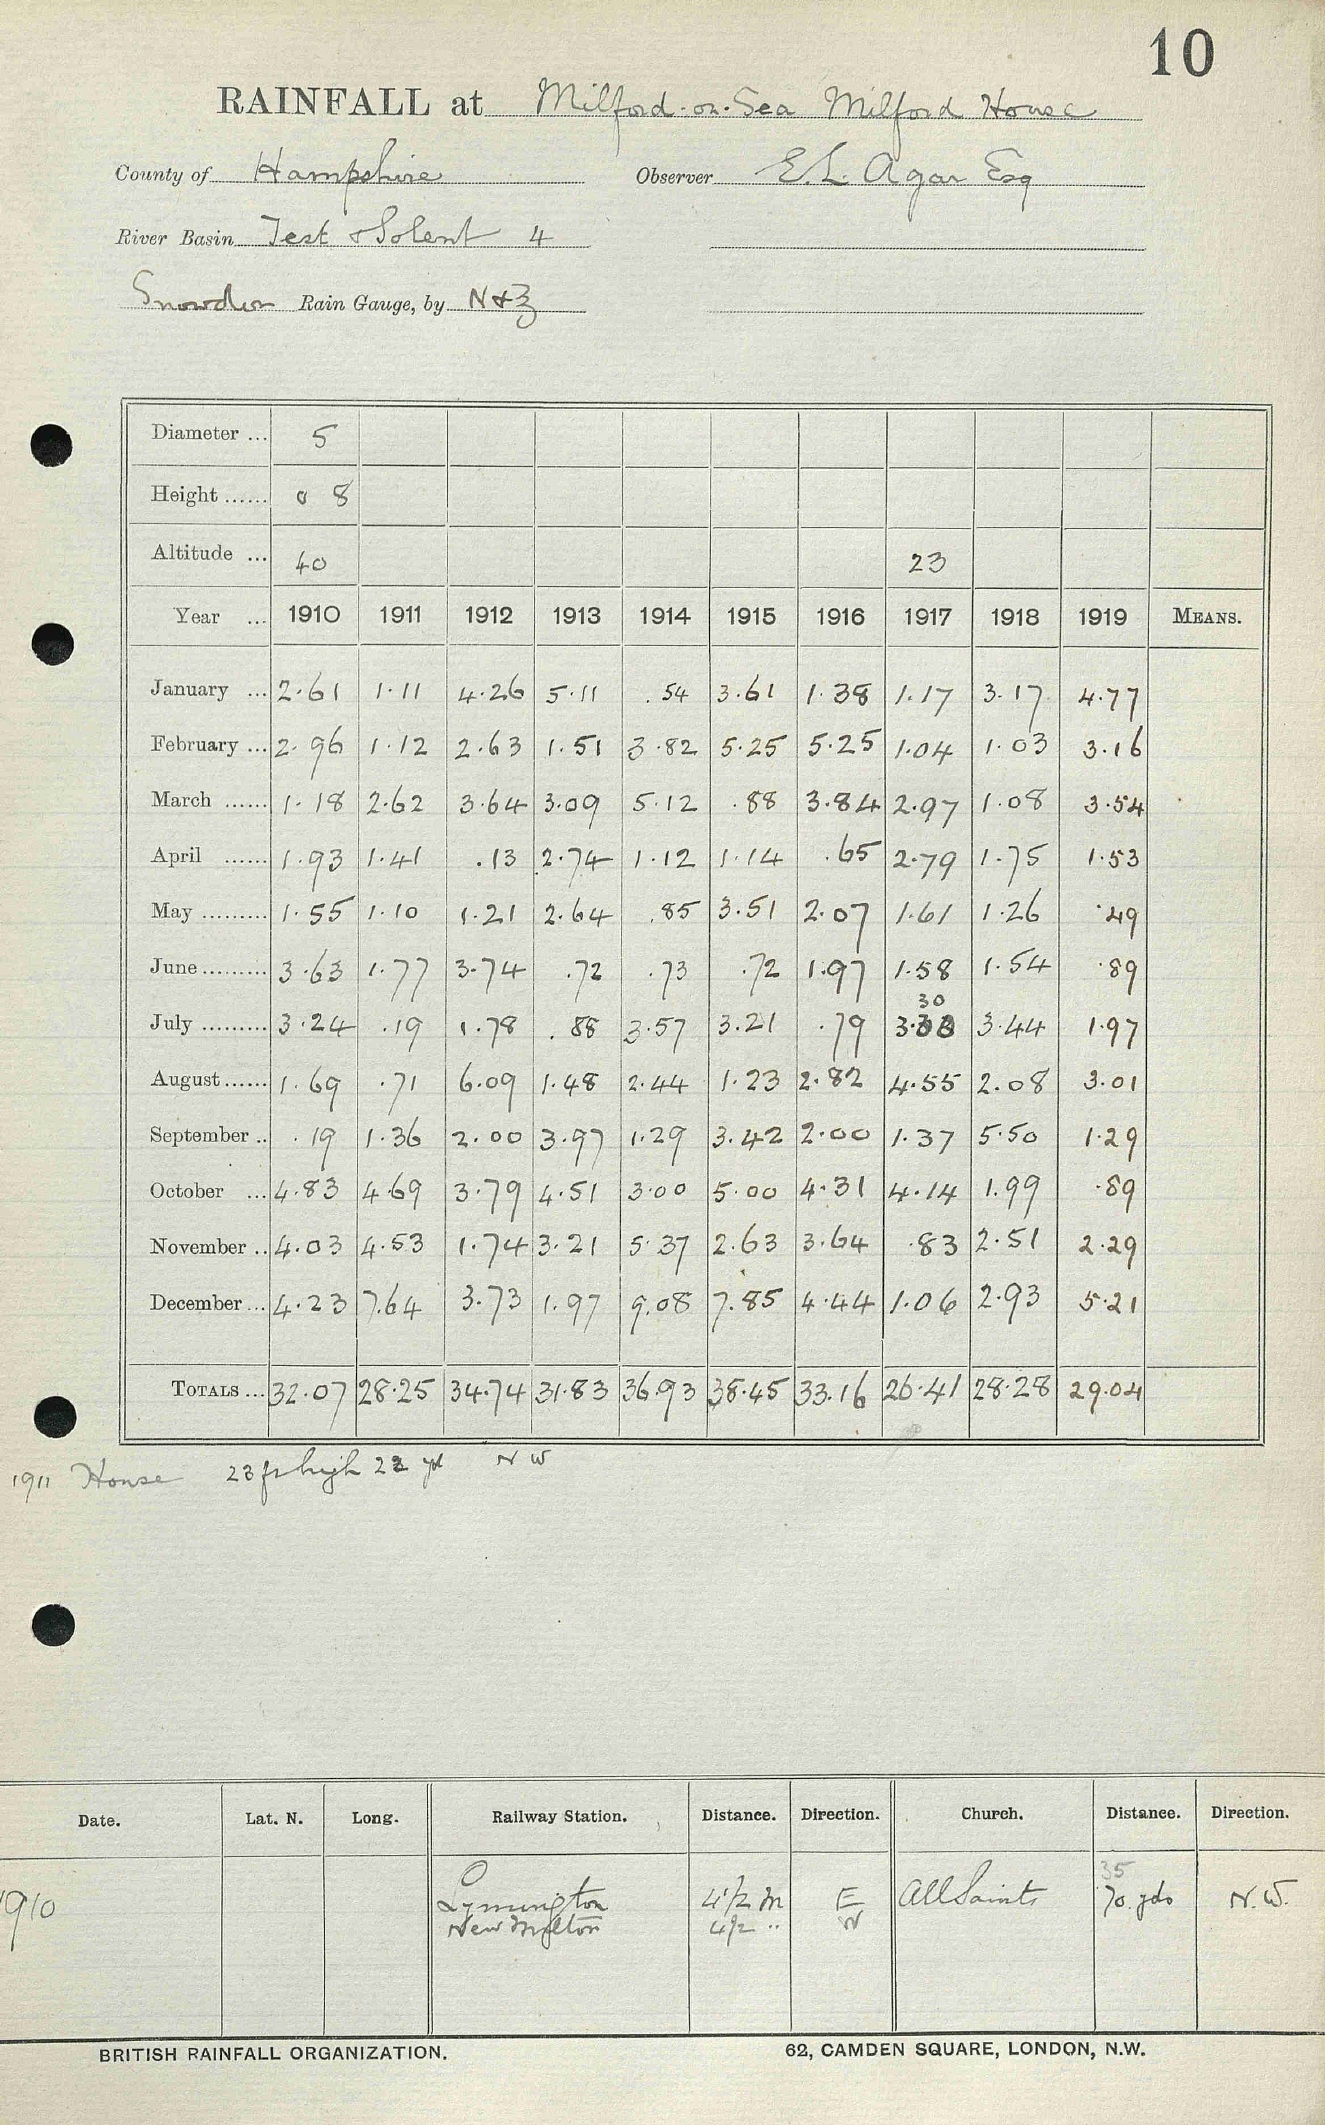 10
RAINFALL at Milford-on-Sea Milford House
County of Hampshire Observer E.L. Agar Esq
River Basin Test & Solent 4
Snowdon Rain Gauge, by N & Z
Diameter ... 5
Height ...... 0 8
Altitude ... 40 23
Year ... 1910 1911 1912 1913 1914 1915 1916 1917 1918 1919 MEANS.
January ... 2.61 1.11 4.26 5.11 .54 3.61 1.38 1.17 3.17 4.77
February ... 2.96 1.12 2.63 1.51 3.82 5.25 5.25 1.04 1.03 3.16
March ...... 1.18 2.62 3.64 3.09 5.12 .88 3.84 2.97 1.08 3.54
April ...... 1.93 1.41 .13 2.74 1.12 1.14 .65 2.79 1.75 1.53
May ......... 1.55 1.10 1.21 2.64 .85 3.51 2.07 1.61 1.26 .49
June ......... 3.63 1.77 3.74 .72 .73 .72 1.97 1.58 1.54 .89
30
July ......... 3.24 .19 1.78 .88 3.57 3.21 .79 3.33 3.44 1.97
August ...... 1.69 .71 6.09 1.48 2.44 1.23 2.82 4.55 2.08 3.01
September .. .19 1.36 2.00 3.97 1.29 3.42 2.00 1.37 5.50 1.29
October ... 4.83 4.69 3.79 4.51 3.00 5.00 4.31 4.14 1.99 .89
November .. 4.03 4.53 1.74 3.21 5.37 2.63 3.64 .83 2.51 2.29
December ... 4.23 7.64 3.73 1.97 9.08 7.85 4.44 1.06 2.93 5.21
TOTALS ... 32.07 28.25 34.74 31.83 36.93 38.45 33.16 26.41 28.28 29.04
1911 House 23 ft high 22 yd N W
Date. Lat. N. Long. Railway Station. Distance. Direction. Church. Distance. Direction.
35
1910 Lymington 4 1/2 m E All Saints 70 yds N.W.
New Milton 4 1/2 " N
BRITISH RAINFALL ORGANIZATION. 62, CAMDEN SQUARE, LONDON, N.W.